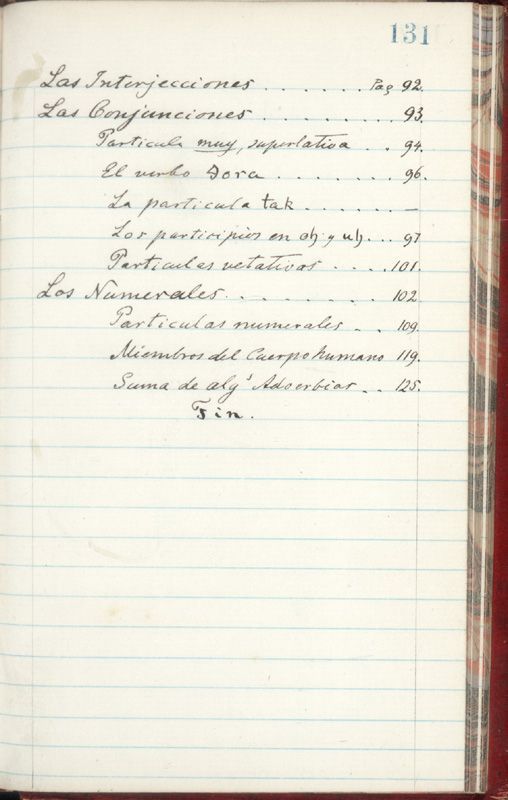 131
Las Interjecciones . . . . . . . Pag 92.
Las Conjunciones . . . . . . . . 93.
Particula muy, superlativa . . 94.
El verbo Dora . . . . . . . 96.
La particula tak . . . . . . —
Los participios en oh y uh . . . 97
Particulas vetativas . . . . . 101.
Los Numerales . . . . . . . . 102
Particulas numerales . . 109.
Miembros del Cuerpo humano 119.
Suma de alg.s Adverbios . . 125.
Fin.